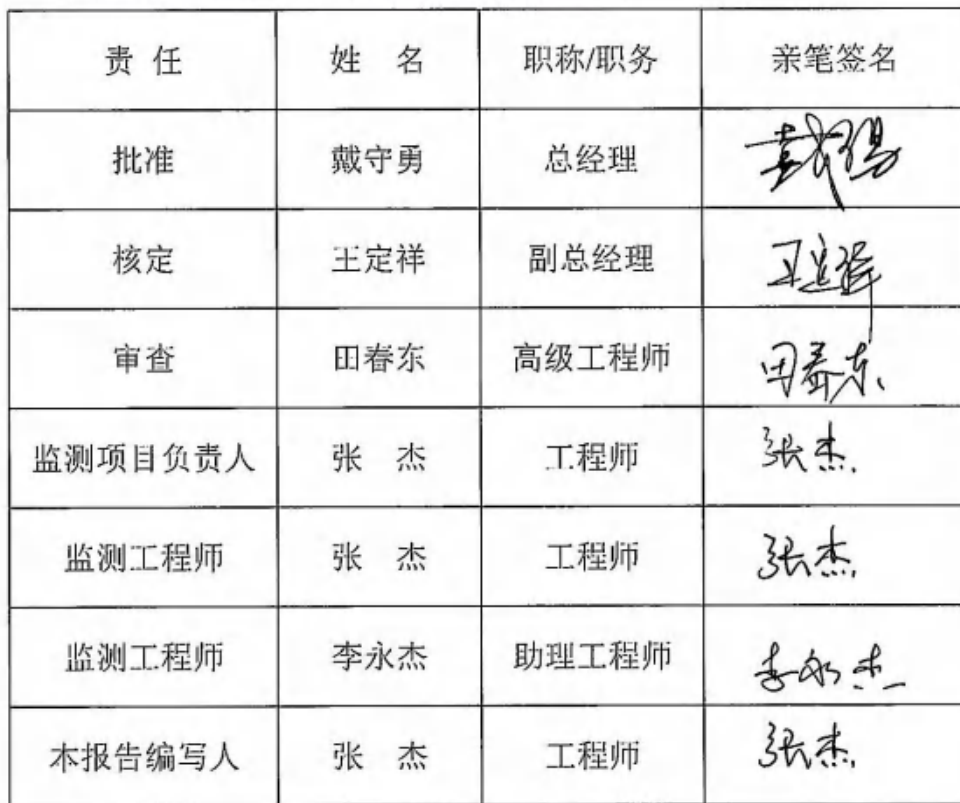 责 任 姓 名 职称/职务 亲笔签名
批准 戴守勇 总经理
核定 王定祥 副总经理 王定祥
审查 田春东 高级工程师 田春东
监测项目负责人 张 杰 工程师 张杰
监测工程师 张 杰 工程师 张杰
监测工程师 李永杰 助理工程师 李永杰
本报告编写人 张 杰 工程师 张杰